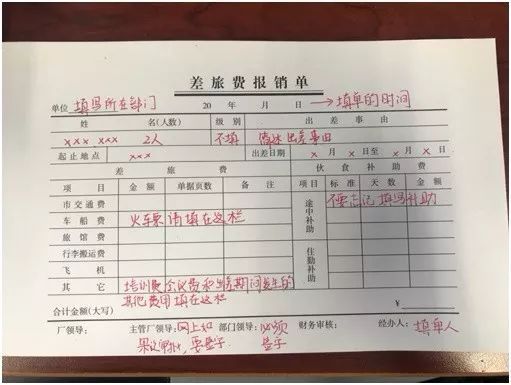 差旅费报销单
单位 填写所在部门 20 年 月 日 → 填单的时间
姓 名(人数) 级别 出差事由
xxx xxx 2人 不填 简述出差事由
起止地点 xxx 出差日期 x月x日至x月x日
差旅费 伙食补助费
项目 金额 单据页数 备注 项目 标准 天数 金额
市交通费 途中补助 不要忘记填写补助
车船费 火车票请填在这栏
旅馆费
行李搬运费 住勤补助
飞机
其它 培训费会议费和出差期间发生的
其他费用填在这栏
合计金额(大写) ¥
厂领导: 主管厂领导: 网上如 部门领导: 必须 财务审核: 经办人: 填单人
要签字 签字